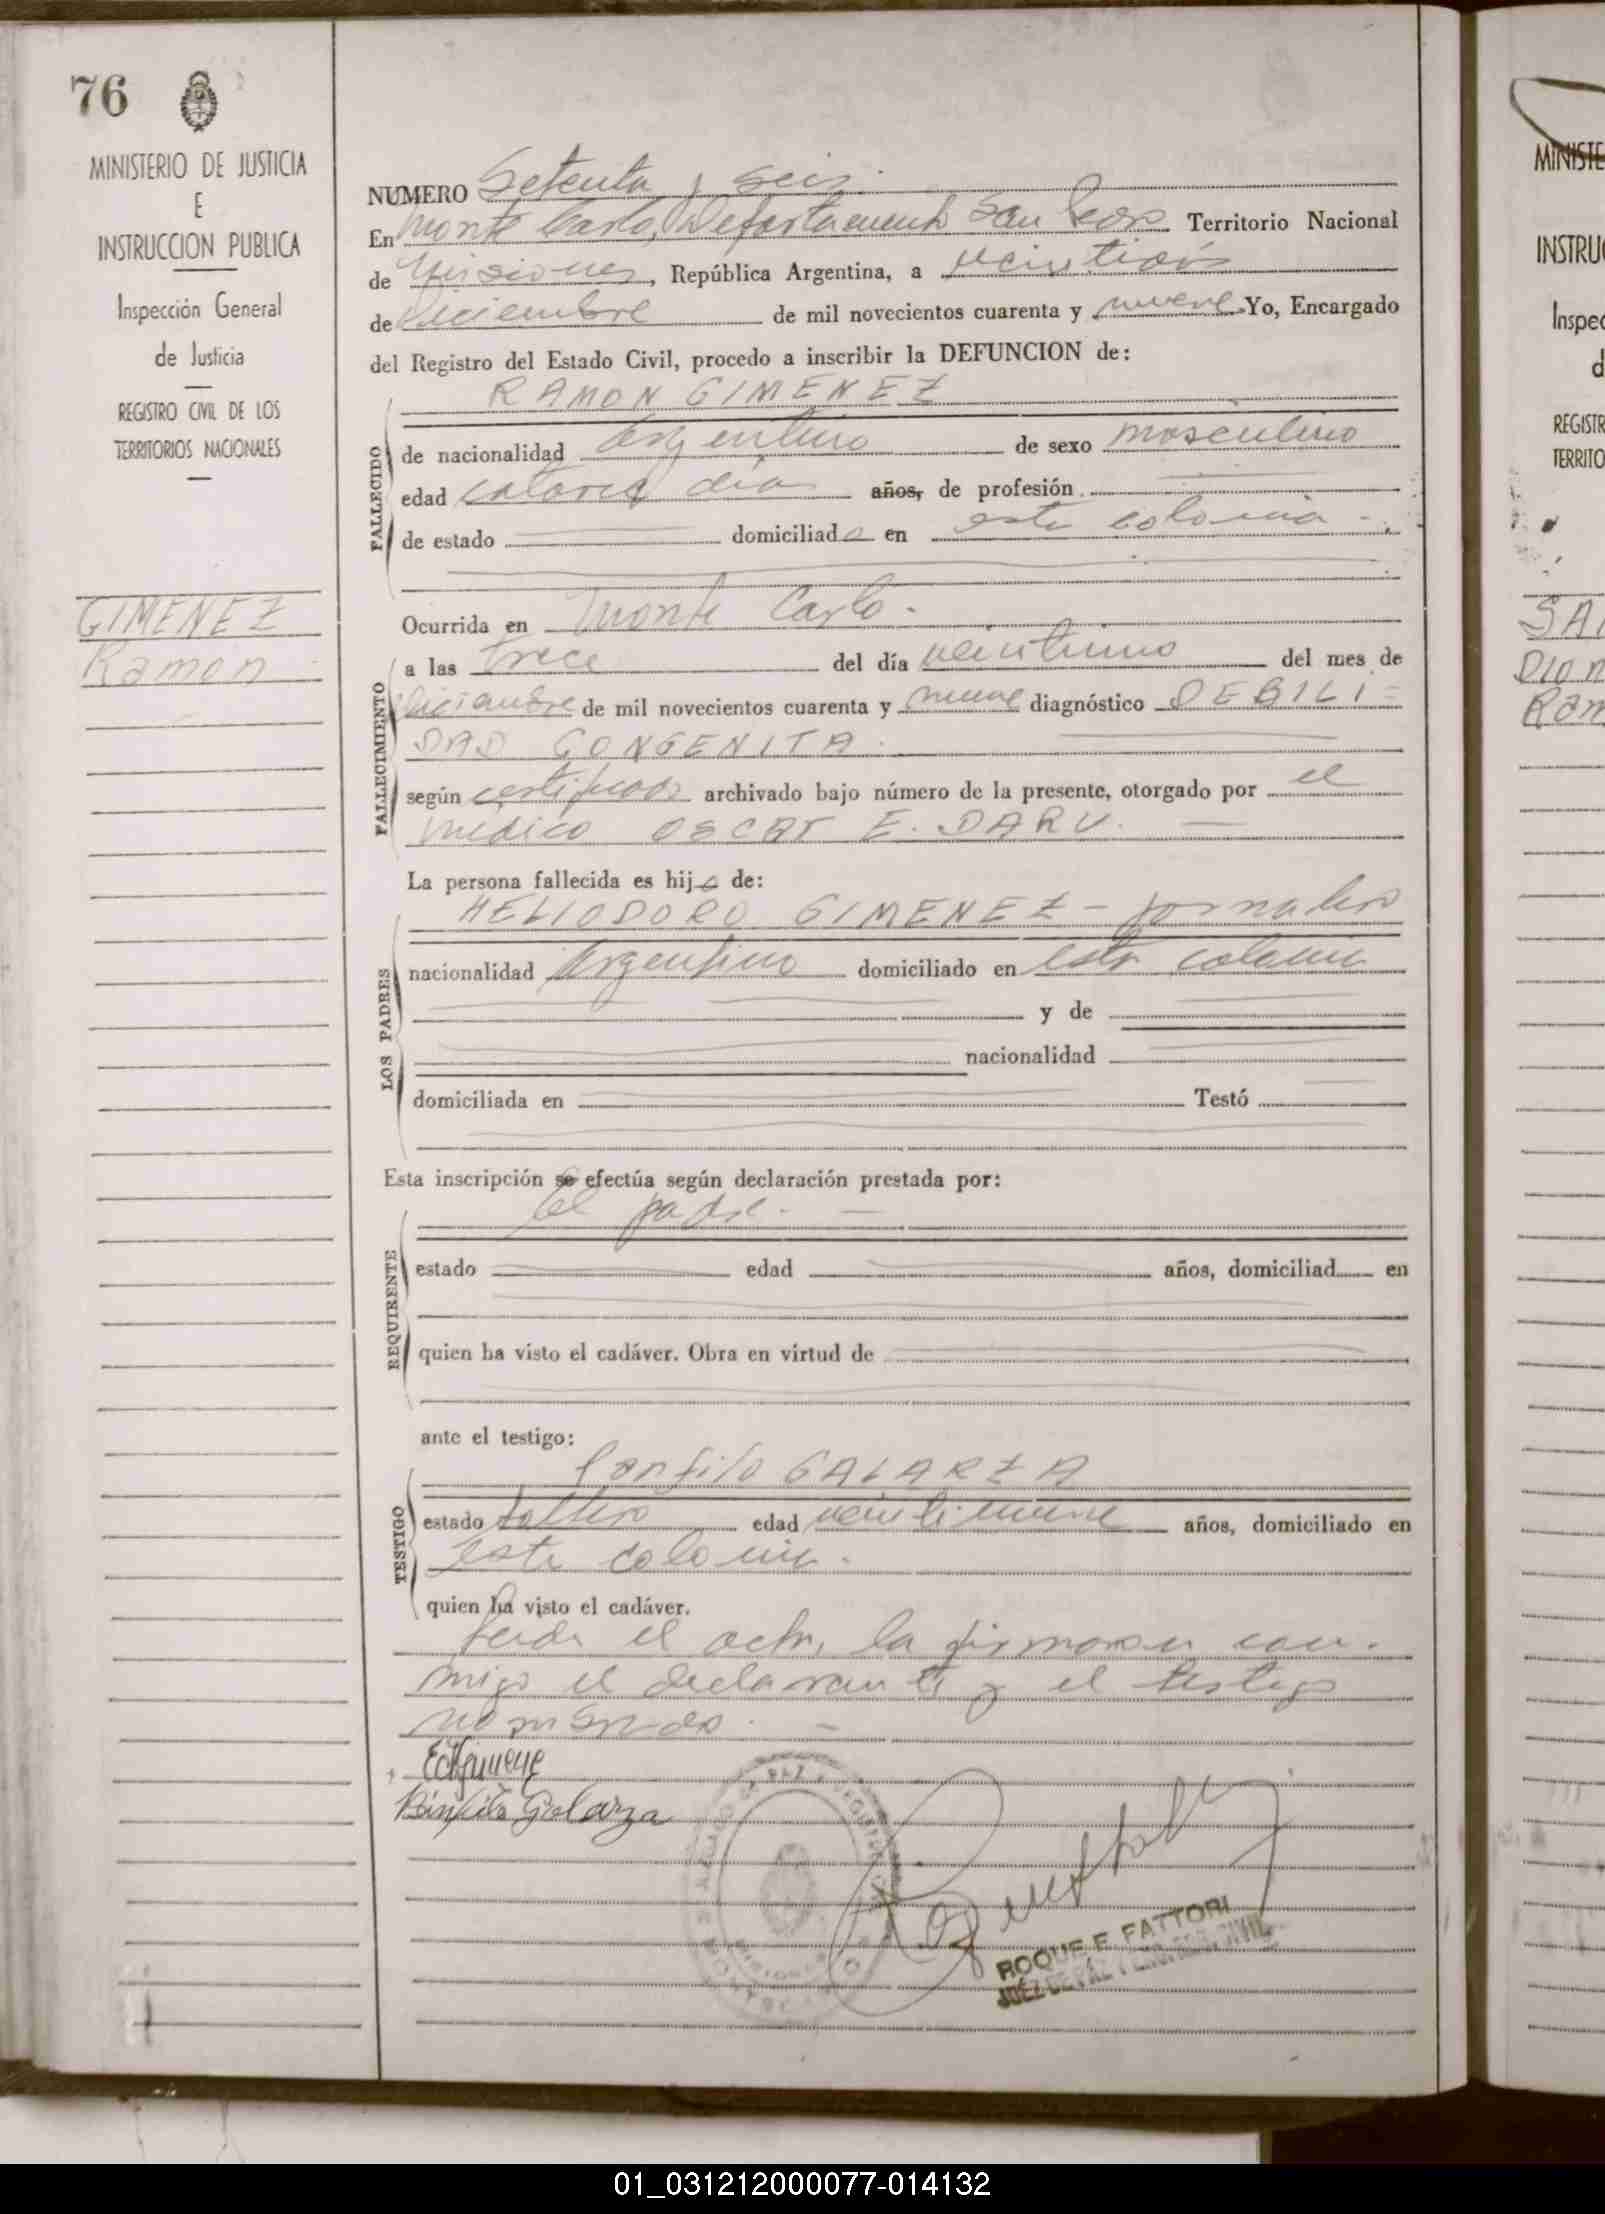 76
MINISTERIO DE JUSTICIA
E
INSTRUCCION PUBLICA
Inspección General
de Justicia
REGISTRO CIVIL DE LOS
TERRITORIOS NACIONALES
GIMENEZ
Ramon
NUMERO Setenta y seis
En Monte Carlo, Departamento San Pedro Territorio Nacional
de Misiones, República Argentina, a
de diciembre de mil novecientos cuarenta y nueve Yo, Encargado
del Registro del Estado Civil, procedo a inscribir la DEFUNCION de:
RAMON GIMENEZ
FALLECIDO
de nacionalidad Argentino de sexo masculino
edad catorce días años, de profesión
de estado domiciliado en esta colonia
Ocurrida en Monte Carlo.
FALLECIMIENTO
a las trece del día veintiuno del mes de
diciembre de mil novecientos cuarenta y nueve diagnóstico DEBILI=
DAD CONGENITA.
según certificado archivado bajo número de la presente, otorgado por el
médico OSCAR E. DARU.
La persona fallecida es hijo de:
LOS PADRES
HELIODORO GIMENEZ - jornalero
nacionalidad Argentino domiciliado en esta colonia
y de
nacionalidad
domiciliada en Testó
Esta inscripción se efectúa según declaración prestada por:
REQUIRENTE
el padre.
estado edad años, domiciliad en
quien ha visto el cadáver. Obra en virtud de
ante el testigo:
TESTIGO
Panfilo GALARZA
estado soltero edad veintinueve años, domiciliado en
esta colonia.
quien ha visto el cadáver.
Leida el acta, la firmaron con-
migo el declarante y el testigo
nombrado.
Panfilo Galarza
ROQUE E. FATTORI
01_031212000077-014132
MINISTE
INSTRU
Inspec
d
REGISTR
TERRITO
SA
Ram